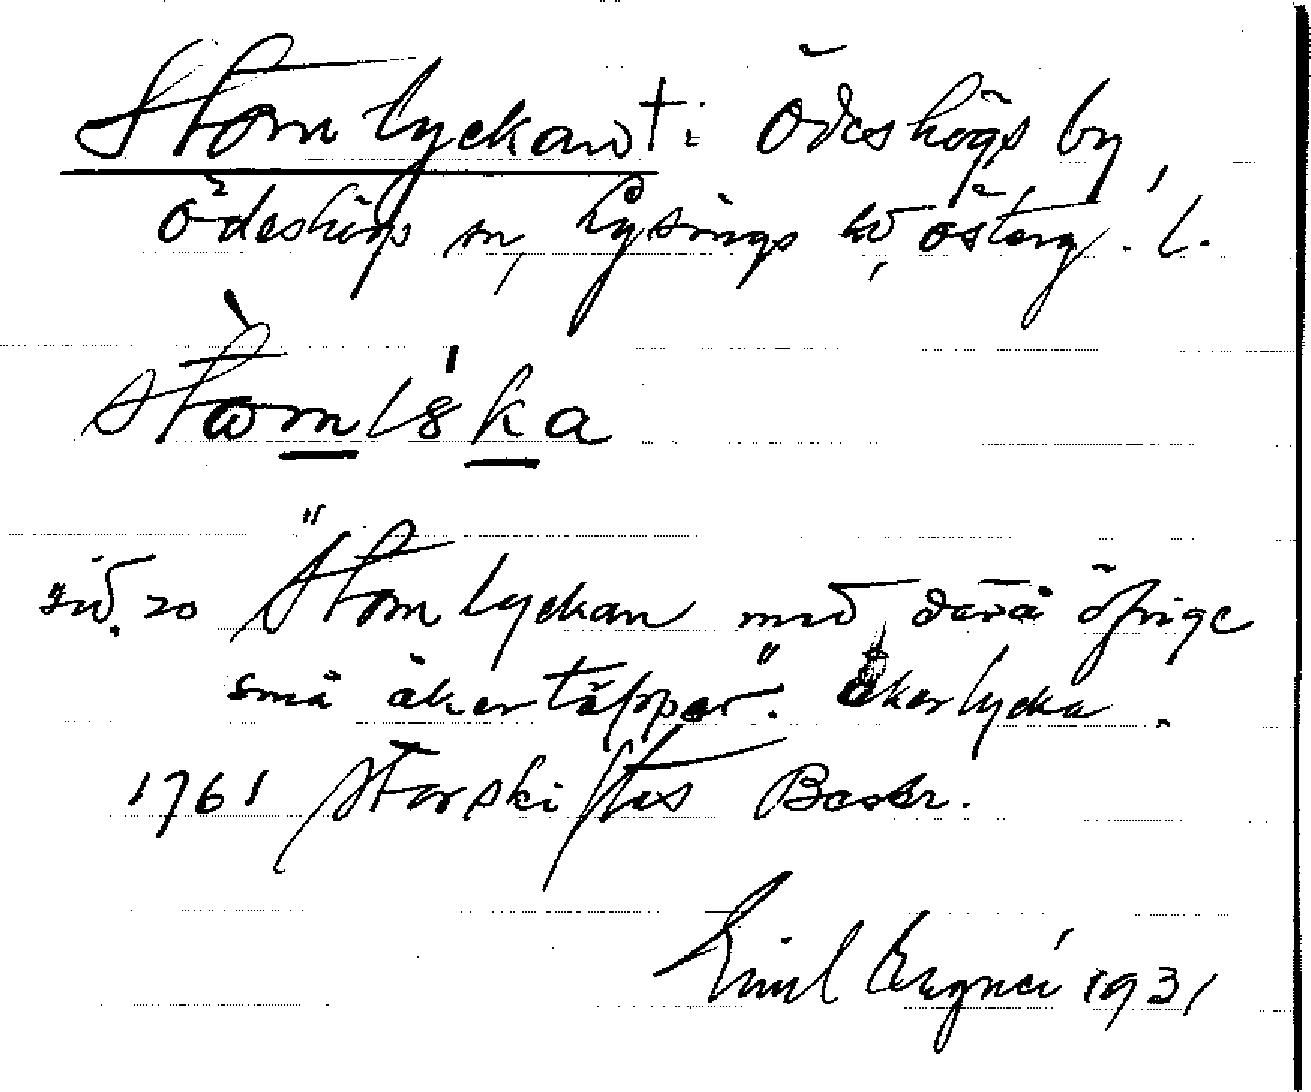 Stomlyckan †: Ödeshögs by,
Ödeshögs sn, Lysings hd, Österg. l.
sid. 20 "Stomlyckan med derå öfrige
små åkertäppor". Åkerlycka.
1761 Storskiftes Beskr.
Emil 1931